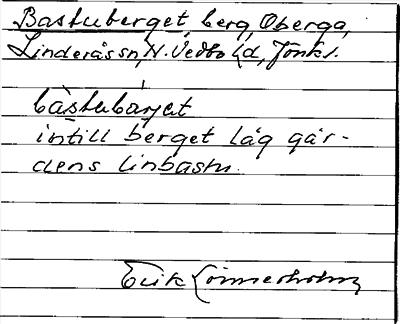 Bastuberget, berg, Oberga,
Linderås sn, N. Vedbo hd, Jönk l.
bàstubárjet
intill berget låg går-
dens linbastu.
Erik Lönnerholm